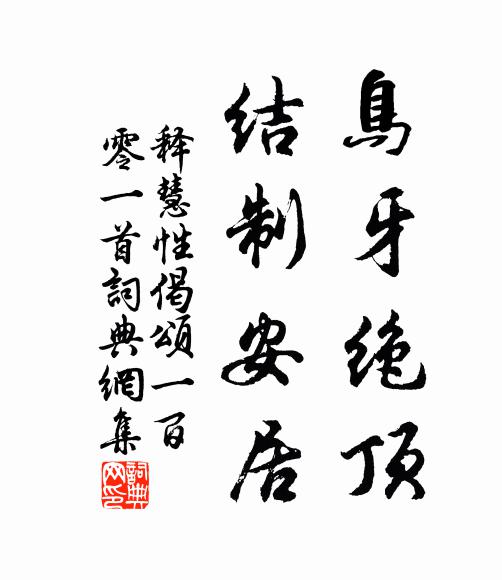 鳥牙絶頂
結制安居
释慧性偈頌一百
零一首詞典網集
詞典网印